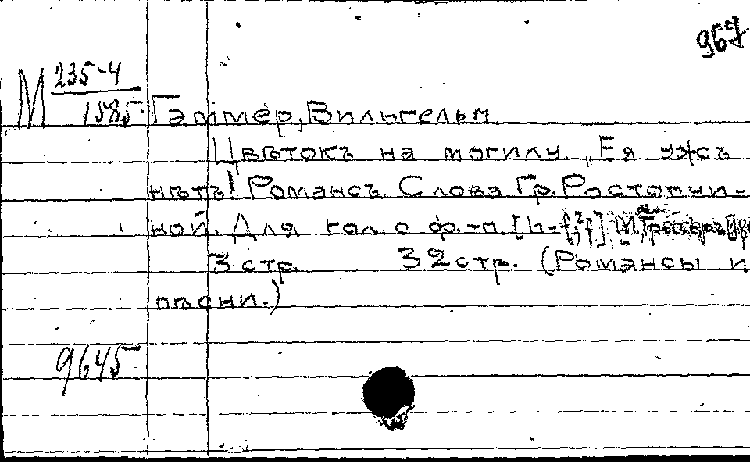 967
М 235-4
1585 Гэммер, Вильгельм.
Цвѣтокъ на могилу. „Ея ужъ
нѣтъ! Романсъ. Слова Гр. Растопчи-
ной. Для гол. с ф.-п.
3 стр. 32 стр. (Романсы и
пѣсни.)
9645